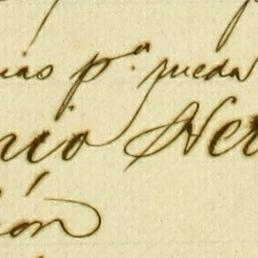 ias p.ª pueda
nio Her
ión